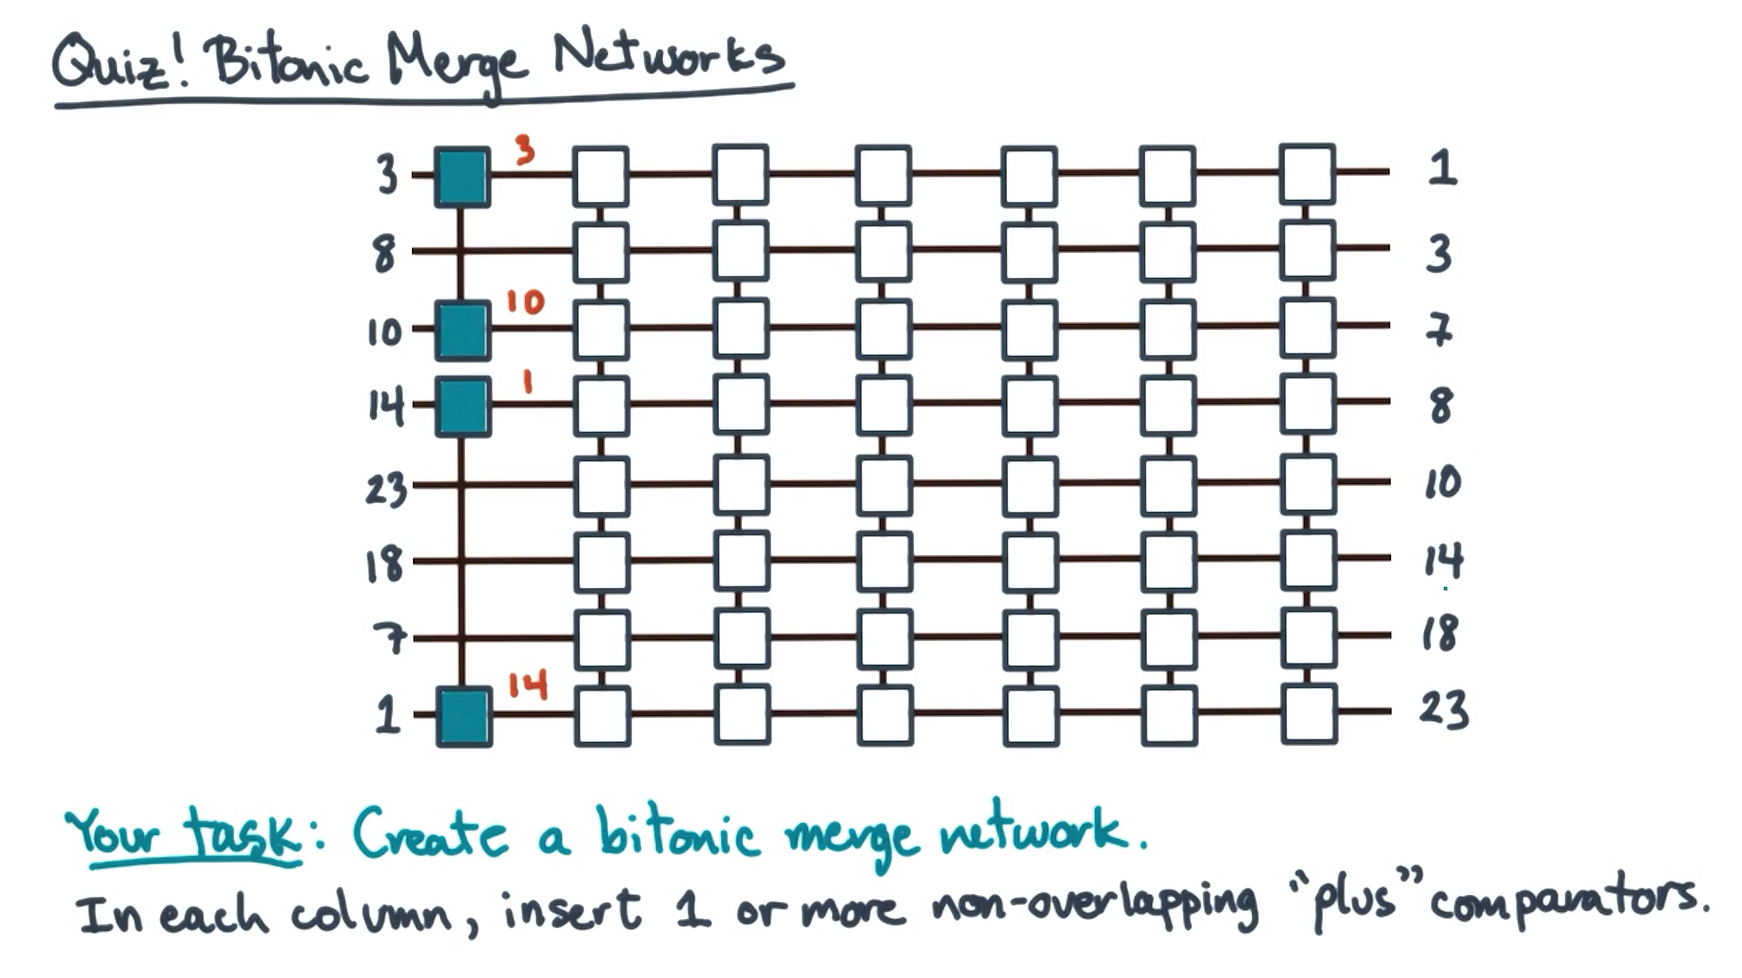 Quiz! Bitonic Merge Networks
3 3 1
8 3
10 10 7
14 1 8
23 10
18 14
7 18
1 14 23
Your task: Create a bitonic merge network.
In each column, insert 1 or more non-overlapping "plus" comparators.